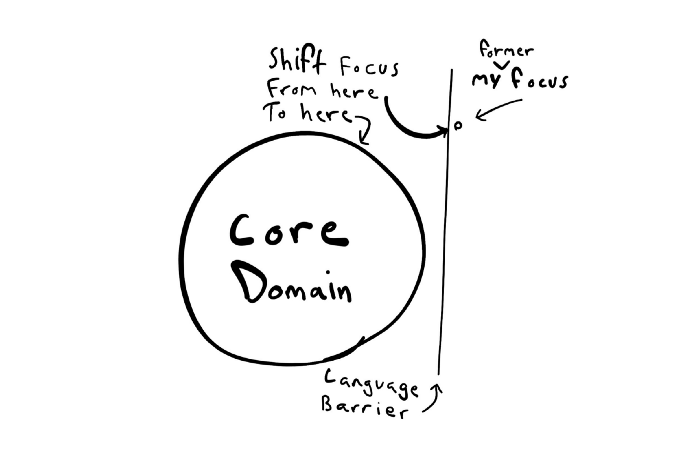 Shift Focus
From here
To here
former
my focus
Core
Domain
Language
Barrier